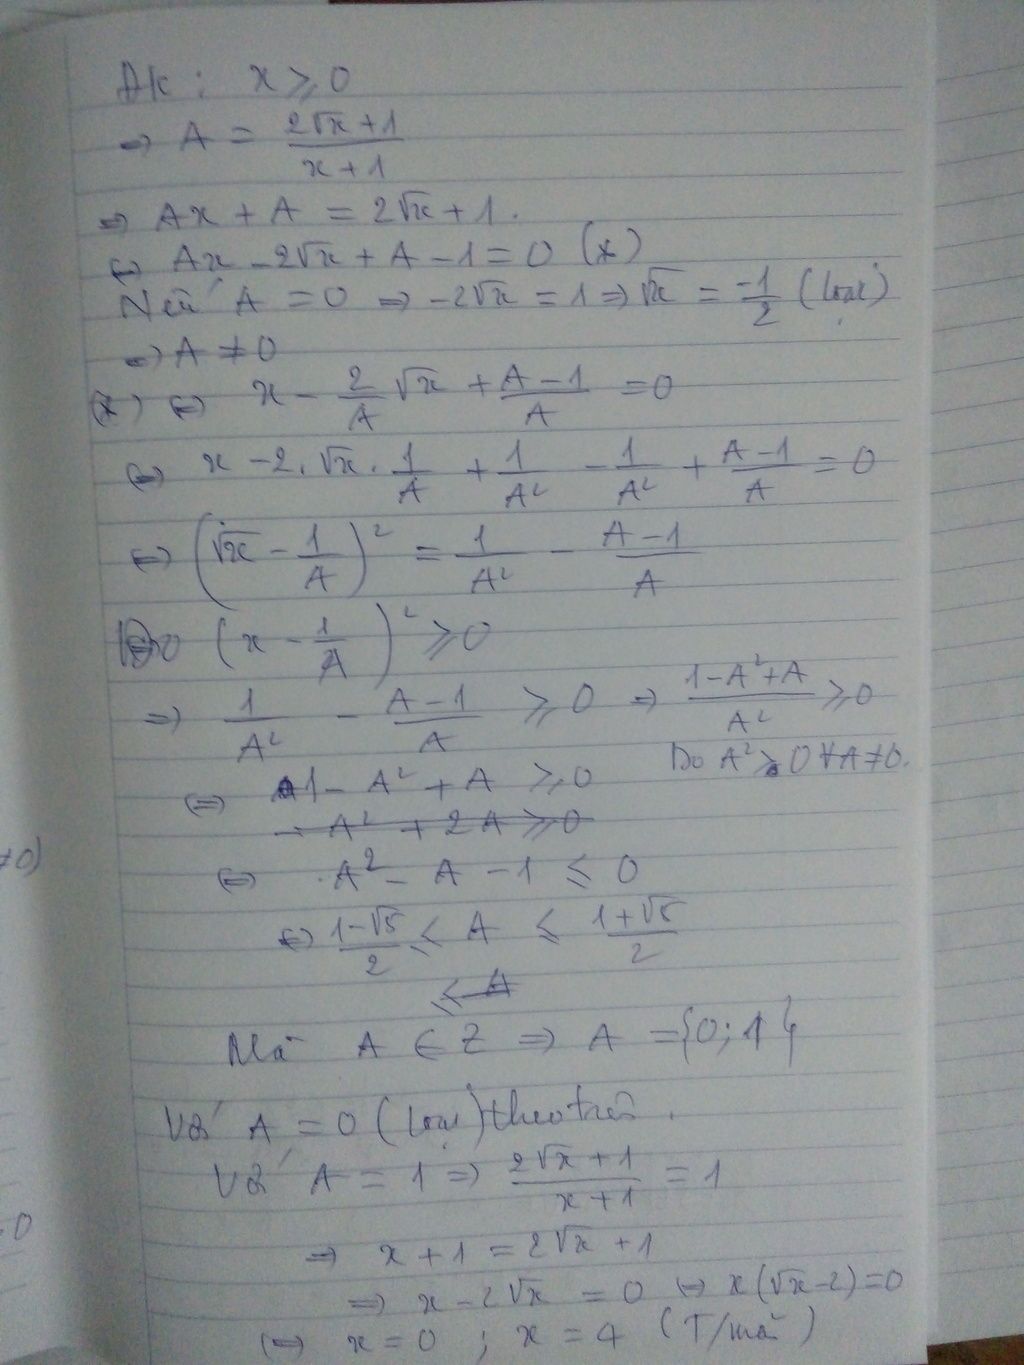 ĐK : x ≥ 0
⇒ A = (2√x + 1)/(x + 1)
⇒ Ax + A = 2√x + 1.
⇔ Ax - 2√x + A - 1 = 0 (*)
Nếu A = 0 ⇒ -2√x = 1 ⇒ √x = -1/2 (loại)
⇒ A ≠ 0
(*) ⇔ x - 2/A √x + (A - 1)/A = 0
⇔ x - 2. √x . 1/A + 1/A² - 1/A² + (A - 1)/A = 0
⇔ (√x - 1/A)² = 1/A² - (A - 1)/A
Do (x - 1/A)² ≥ 0
⇒ 1/A² - (A - 1)/A ≥ 0 ⇒ (1 - A² + A)/A² ≥ 0
Do A² > 0 ∀A ≠ 0.
⇔ 1 - A² + A ≥ 0
- A² + 2A ≥ 0
⇔ A² - A - 1 ≤ 0
⇔ (1 - √5)/2 ≤ A ≤ (1 + √5)/2
≤ A
Mà A ∈ Z ⇒ A = {0; 1}
Với A = 0 (loại) theo trên.
Với A = 1 ⇒ (2√x + 1)/(x + 1) = 1
⇒ x + 1 = 2√x + 1
⇒ x - 2√x = 0 ⇔ x(√x - 2) = 0
⇔ x = 0 ; x = 4 (T/mãn)
≠0)
=0